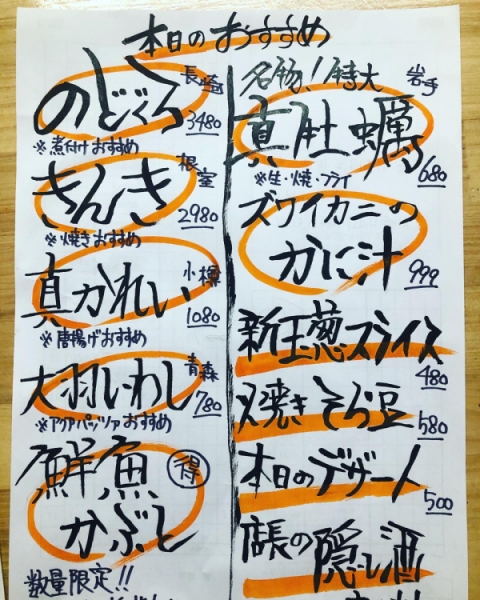 本日のおすすめ
のどぐろ
長崎
3480
※煮付けおすすめ
きんき
根室
2980
※焼きおすすめ
真かれい
小樽
1080
※唐揚げおすすめ
大羽いわし
青森
780
※アクアパッツァおすすめ
鮮魚
得
かぶと
数量限定!!
名物!特大
岩手
真牡蠣
680
※生・焼・フライ
ズワイカニの
かに汁
999
新玉葱スライス
480
焼きそら豆
580
本日のデザート
500
店長の隠し酒